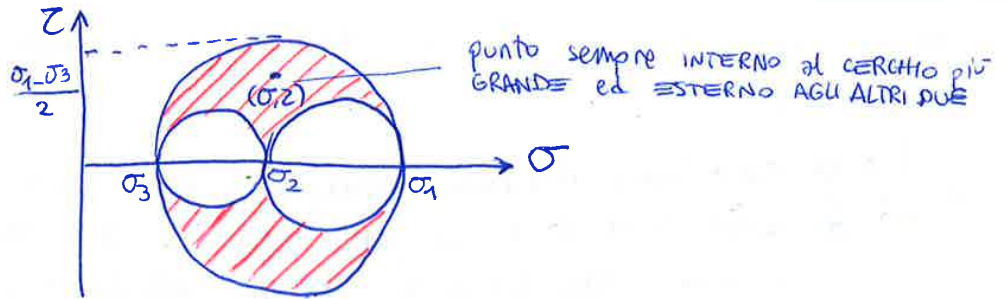 τ
σ1-σ3
2
punto sempre INTERNO al CERCHIO più
GRANDE ed ESTERNO AGLI ALTRI DUE
(σ,τ)
σ
σ3
σ2
σ1